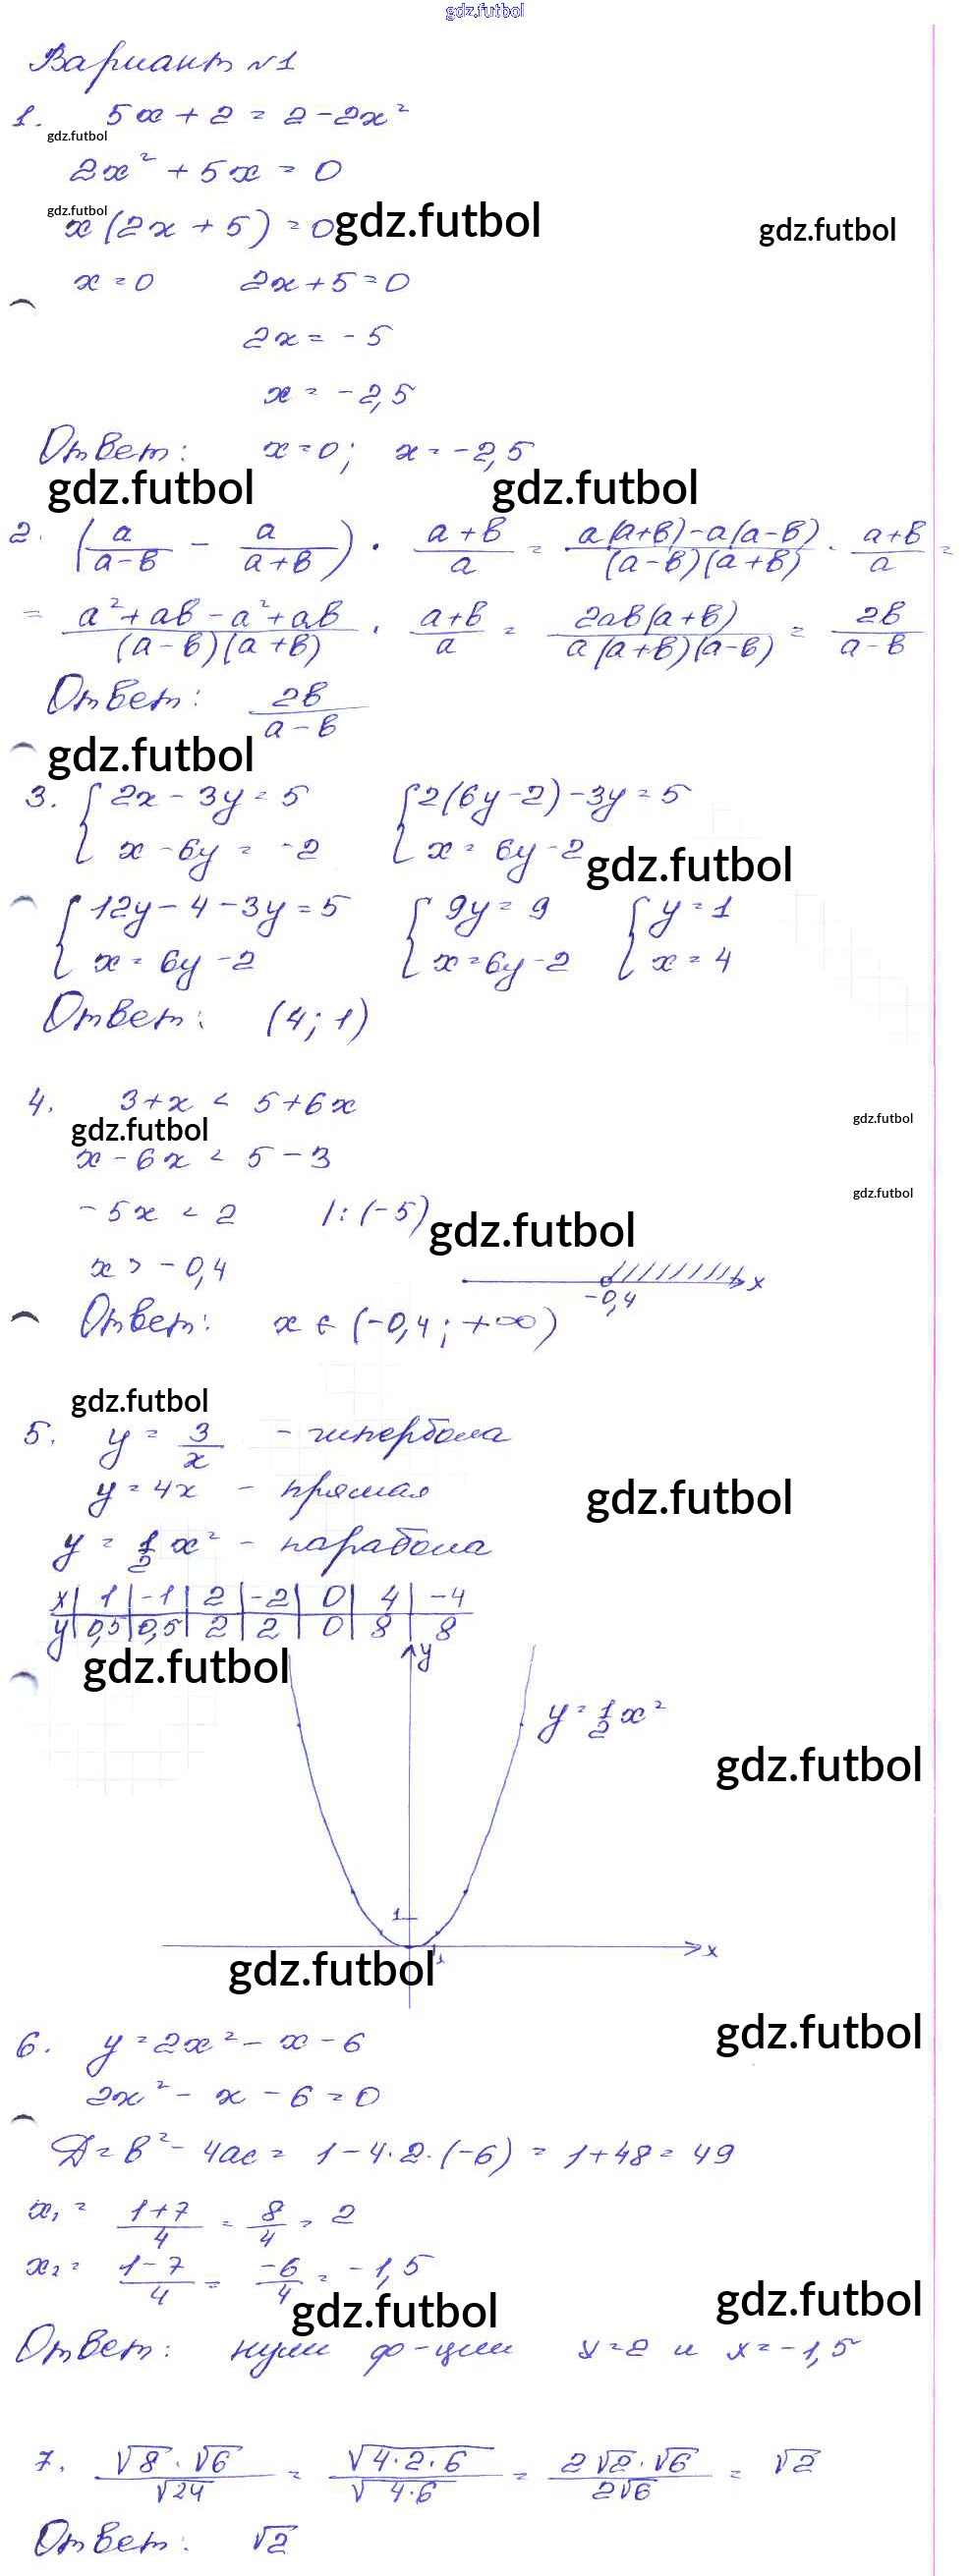 gdz.futbol
Вариант №1
1. 5x + 2 = 2 - 2x²
gdz.futbol
2x² + 5x = 0
gdz.futbol
x(2x + 5) = 0 gdz.futbol gdz.futbol
x = 0 2x + 5 = 0
2x = -5
x = -2,5
Ответ: x = 0; x = -2,5
gdz.futbol gdz.futbol
2. (a/(a-в) - a/(a+в)) · (a+в)/a = (a(a+в)-a(a-в))/((a-в)(a+в)) · (a+в)/a =
= (a²+aв-a²+aв)/((a-в)(a+в)) · (a+в)/a = 2aв(a+в)/(a(a+в)(a-в)) = 2в/(a-в)
Ответ: 2в/(a-в)
gdz.futbol
3. { 2x - 3y = 5 { 2(6y-2) - 3y = 5
x - 6y = -2 x = 6y - 2 gdz.futbol
{ 12y - 4 - 3y = 5 { 9y = 9 { y = 1
x = 6y - 2 x = 6y - 2 x = 4
Ответ: (4; 1)
4. 3 + x < 5 + 6x
gdz.futbol gdz.futbol
x - 6x < 5 - 3
gdz.futbol
-5x < 2 |: (-5) gdz.futbol
x > -0,4 x
-0,4
Ответ: x ∈ (-0,4; +∞)
gdz.futbol
5. y = 3/x - гипербола
y = 4x - прямая gdz.futbol
y = 1/2 x² - парабола
x | 1 | -1 | 2 | -2 | 0 | 4 | -4
y | 0,5 | 0,5 | 2 | 2 | 0 | 8 | 8
gdz.futbol y
y = 1/2 x²
gdz.futbol
1
gdz.futbol 1 x
gdz.futbol
6. y = 2x² - x - 6
2x² - x - 6 = 0
Д = в² - 4ac = 1 - 4·2·(-6) = 1 + 48 = 49
x₁ = (1+7)/4 = 8/4 = 2
x₂ = (1-7)/4 = -6/4 = -1,5
gdz.futbol gdz.futbol
Ответ: нули ф-ции x = 2 и x = -1,5
7. (√8 · √6)/√24 = √(4·2·6)/√(4·6) = (2√2·√6)/(2√6) = √2
Ответ: √2